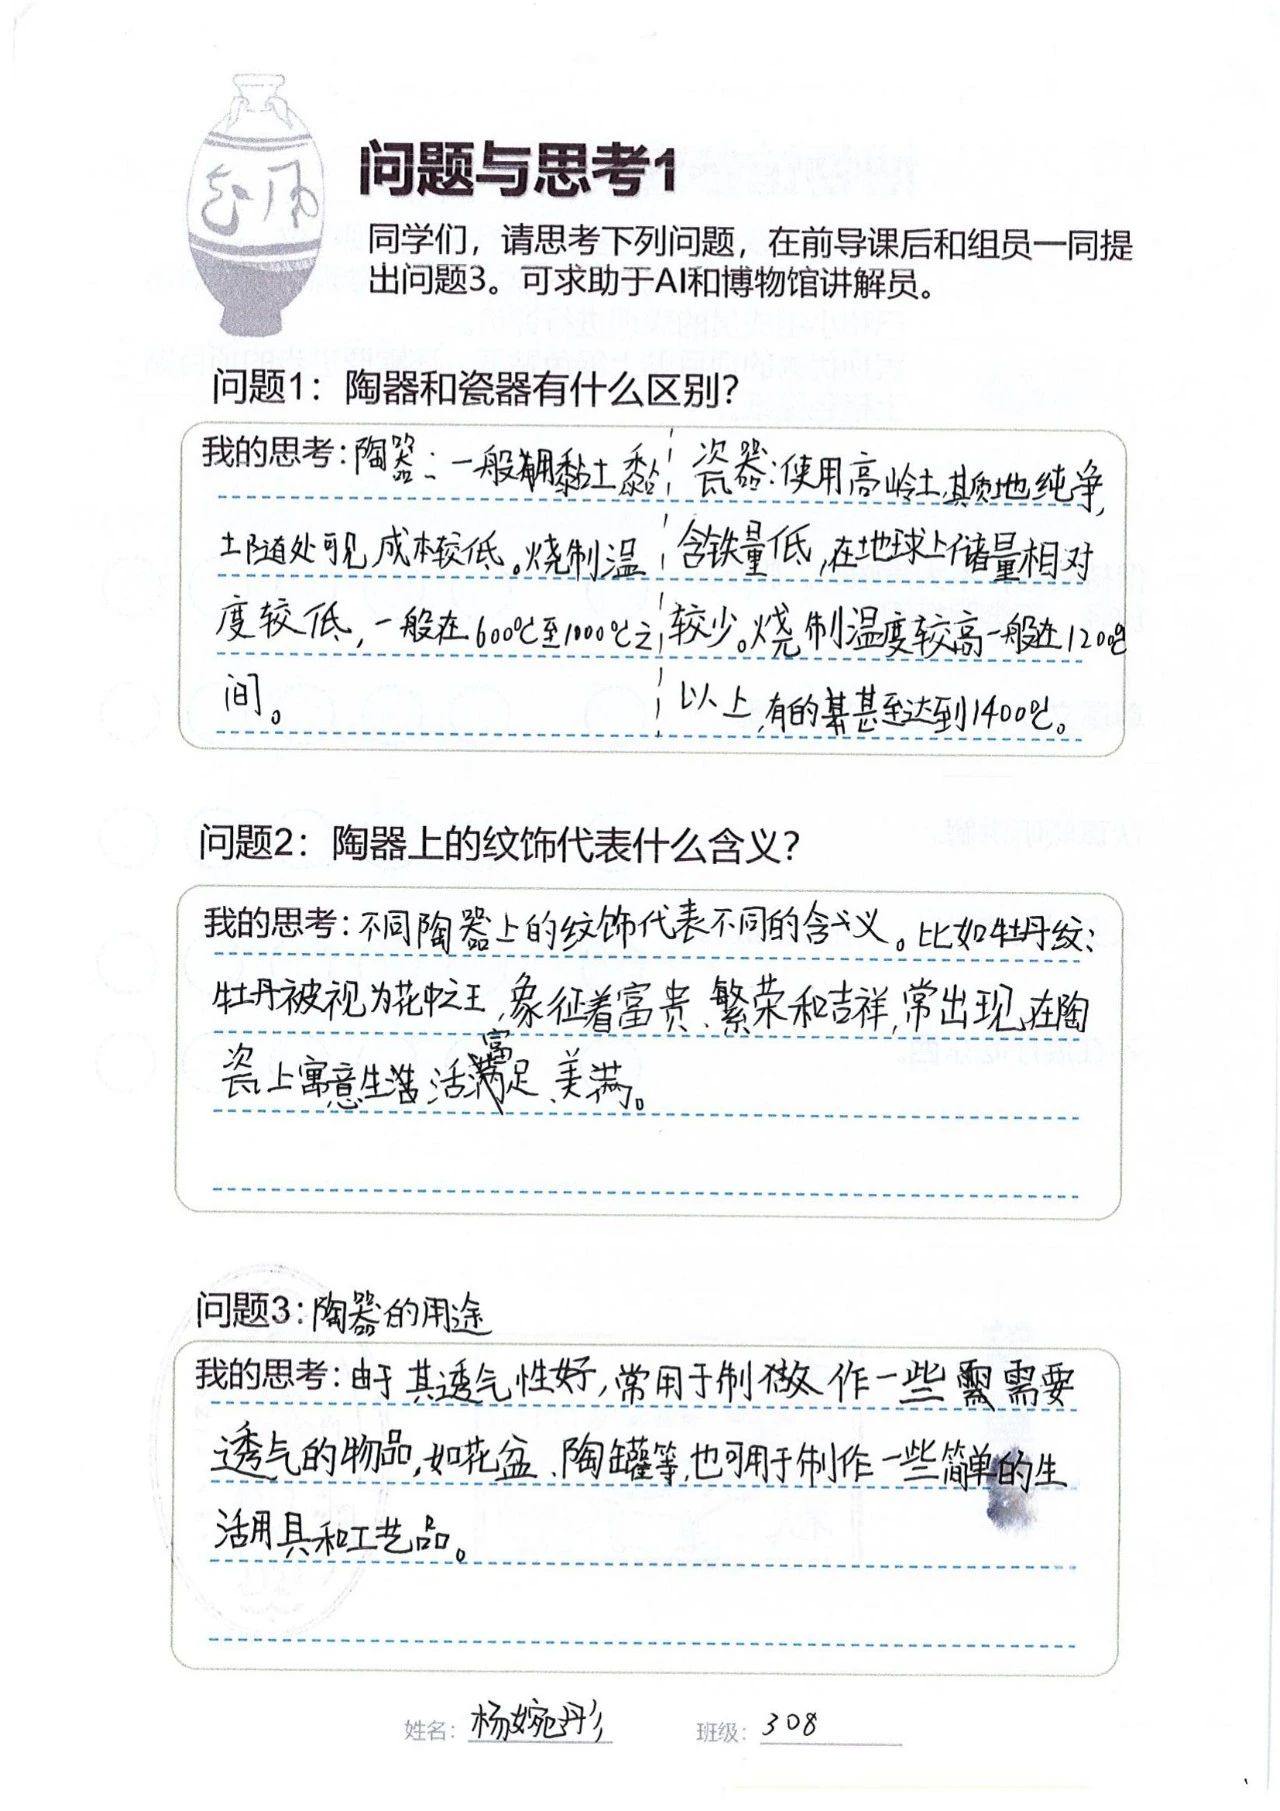 问题与思考1
同学们，请思考下列问题，在前导课后和组员一同提
出问题3。可求助于AI和博物馆讲解员。
问题1：陶器和瓷器有什么区别？
我的思考：陶器：一般用黏土黏
土随处可见，成本较低。烧制温
度较低，一般在600℃至1000℃之
间。
瓷器：使用高岭土，其质地纯净，
含铁量低，在地球上储量相对
较少。烧制温度较高一般在1200℃
以上，有的甚至达到1400℃。
问题2：陶器上的纹饰代表什么含义？
我的思考：不同陶器上的纹饰代表不同的含义。比如牡丹纹：
牡丹被视为花中之王，象征着富贵、繁荣和吉祥，常出现在陶
瓷上寓意生活富足、美满。
问题3：陶器的用途
我的思考：由于其透气性好，常用于制作一些需要
透气的物品，如花盆、陶罐等，也可用于制作一些简单的生
活用具和工艺品。
姓名：杨婉彤 班级：308